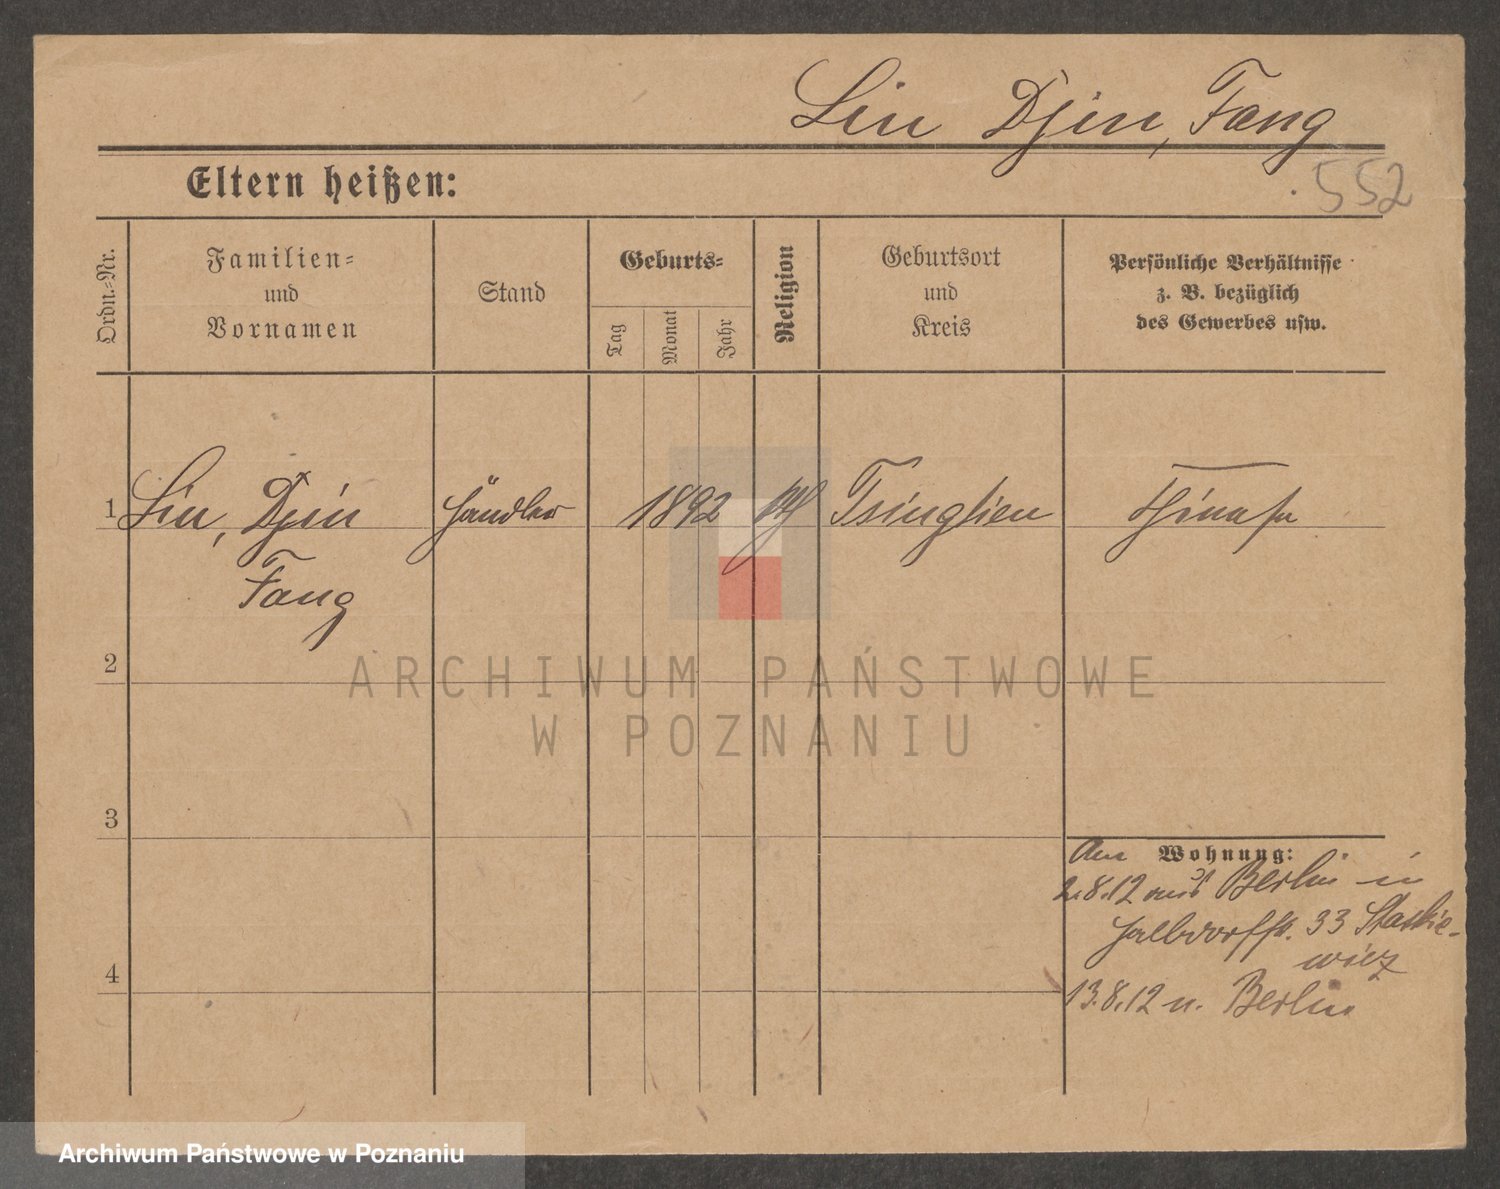 Lin Djin, Fang
Eltern heißen:
552
Ordn.-Nr.
Familien-
und
Vornamen
Stand
Geburts-
Tag
Monat
Jahr
Religion
Geburtsort
und
Kreis
Persönliche Verhältnisse
z. B. bezüglich
des Gewerbes usw.
1 Lin, Djin Händler 1892 Tsinglien
Fang
2
ARCHIWUM PAŃSTWOWE
W POZNANIU
3
Wohnung:
Am
2.8.12 aus Berlin in
Halbdorfstr. 33
wicz
4
13.8.12 n. Berlin
Archiwum Państwowe w Poznaniu